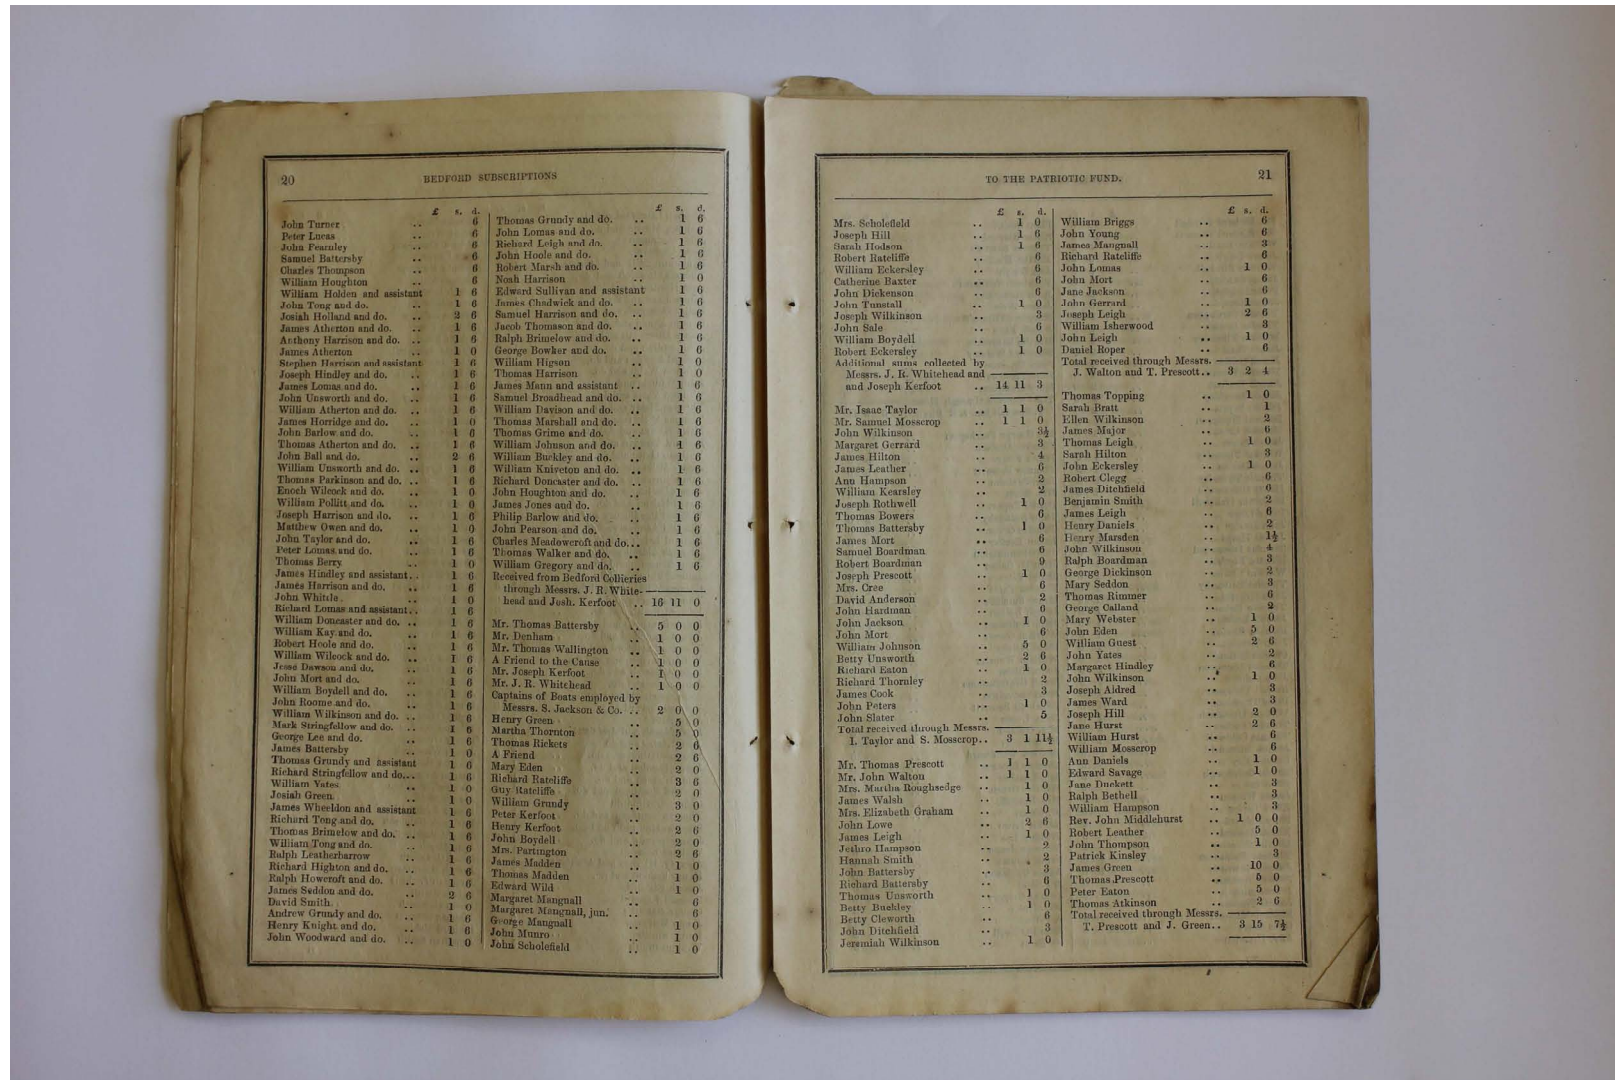 20
BEDFORD SUBSCRIPTIONS
£ s. d.
John Turner .. 6
Peter Lucas .. 6
John Fearnley .. 6
Samuel Battersby .. 6
Charles Thompson .. 6
William Houghton .. 6
William Holden and assistant 1 6
John Tong and do. .. 1 6
Josiah Holland and do. .. 2 6
James Atherton and do. .. 1 6
Anthony Harrison and do. .. 1 6
James Atherton .. 1 0
Stephen Harrison and assistant 1 6
Joseph Hindley and do. .. 1 6
James Lomas and do. .. 1 6
John Unsworth and do. .. 1 6
William Atherton and do. .. 1 6
James Horridge and do. .. 1 0
John Barlow and do. .. 1 6
Thomas Atherton and do. .. 1 6
John Ball and do. .. 2 6
William Unsworth and do. .. 1 6
Thomas Parkinson and do. .. 1 6
Enoch Wilcock and do. .. 1 0
William Pollitt and do. .. 1 0
Joseph Harrison and do. .. 1 6
Matthew Owen and do. .. 1 0
John Taylor and do. .. 1 6
Peter Lomas and do. .. 1 6
Thomas Berry .. 1 0
James Hindley and assistant.. 1 6
James Harrison and do. .. 1 6
John Whittle .. 1 0
Richard Lomas and assistant.. 1 6
William Doncaster and do. .. 1 6
William Kay and do. .. 1 6
Robert Hoole and do. .. 1 6
William Wilcock and do. .. 1 6
Jesse Dawson and do. .. 1 6
John Mort and do. .. 1 6
William Boydell and do. .. 1 6
John Roome and do. .. 1 6
William Wilkinson and do. .. 1 6
Mark Stringfellow and do. .. 1 6
George Lee and do. .. 1 6
James Battersby .. 1 0
Thomas Grundy and assistant 1 6
Richard Stringfellow and do... 1 6
William Yates .. 1 0
Josiah Green .. 1 0
James Wheeldon and assistant 1 6
Richard Tong and do. .. 1 6
Thomas Brimelow and do. .. 1 6
William Tong and do. .. 1 6
Ralph Leatherbarrow .. 1 6
Richard Highton and do. .. 1 6
Ralph Howcroft and do. .. 1 6
James Seddon and do. .. 2 6
David Smith .. 1 0
Andrew Grundy and do. .. 1 6
Henry Knight and do. .. 1 6
John Woodward and do. .. 1 0
£ s. d.
Thomas Grundy and do. .. 1 6
John Lomas and do. .. 1 6
Richard Leigh and do. .. 1 6
John Hoole and do. .. 1 6
Robert Marsh and do. .. 1 6
Noah Harrison .. 1 0
Edward Sullivan and assistant 1 6
James Chadwick and do. .. 1 6
Samuel Harrison and do. .. 1 6
Jacob Thomason and do. .. 1 6
Ralph Brimelow and do. .. 1 6
George Bowker and do. .. 1 6
William Higson .. 1 0
Thomas Harrison .. 1 0
James Mann and assistant .. 1 6
Samuel Broadhead and do. .. 1 6
William Davison and do. .. 1 6
Thomas Marshall and do. .. 1 6
Thomas Grime and do. .. 1 6
William Johnson and do. .. 1 6
William Buckley and do. .. 1 6
William Kniveton and do. .. 1 6
Richard Doncaster and do. .. 1 6
John Houghton and do. .. 1 6
James Jones and do. .. 1 6
Philip Barlow and do. .. 1 6
John Pearson and do. .. 1 6
Charles Meadowcroft and do... 1 6
Thomas Walker and do. .. 1 6
William Gregory and do. .. 1 6
Received from Bedford Collieries
through Messrs. J. R. White-
head and Josh. Kerfoot .. 16 11 0
Mr. Thomas Battersby .. 5 0 0
Mr. Denham .. 1 0 0
Mr. Thomas Wallington .. 1 0 0
A Friend to the Cause .. 1 0 0
Mr. Joseph Kerfoot .. 1 0 0
Mr. J. R. Whitehead .. 1 0 0
Captains of Boats employed by
Messrs. S. Jackson & Co. .. 2 0 0
Henry Green .. 5 0
Martha Thornton .. 5 0
Thomas Rickets .. 2 6
A Friend .. 2 6
Mary Eden .. 2 0
Richard Ratcliffe .. 3 6
Guy Ratcliffe .. 2 0
William Grundy .. 3 0
Peter Kerfoot .. 2 0
Henry Kerfoot .. 2 6
John Boydell .. 2 0
Mrs. Partington .. 2 6
James Madden .. 1 0
Thomas Madden .. 1 0
Edward Wild .. 1 0
Margaret Mangnall .. 6
Margaret Mangnall, jun. .. 6
George Mangnall .. 1 0
John Munro .. 1 0
John Scholefield .. 1 0
TO THE PATRIOTIC FUND.
21
£ s. d.
Mrs. Scholefield .. 1 0
Joseph Hill .. 1 6
Sarah Hodson .. 1 6
Robert Ratcliffe .. 6
William Eckersley .. 6
Catherine Baxter .. 6
John Dickenson .. 6
John Tunstall .. 1 0
Joseph Wilkinson .. 3
John Sale .. 6
William Boydell .. 1 0
Robert Eckersley .. 1 0
Additional sums collected by
Messrs. J. R. Whitehead and
and Joseph Kerfoot .. 14 11 3
Mr. Isaac Taylor .. 1 1 0
Mr. Samuel Mosscrop .. 1 1 0
John Wilkinson .. 3½
Margaret Gerrard .. 3
James Hilton .. 4
James Leather .. 6
Ann Hampson .. 2
William Kearsley .. 2
Joseph Rothwell .. 1 0
Thomas Bowers .. 6
Thomas Battersby .. 1 0
James Mort .. 6
Samuel Boardman .. 6
Robert Boardman .. 9
Joseph Prescott .. 1 0
Mrs. Cree .. 6
David Anderson .. 2
John Hardman .. 6
John Jackson .. 1 0
John Mort .. 6
William Johnson .. 5 0
Betty Unsworth .. 2 6
Richard Eaton .. 1 0
Richard Thornley .. 2
James Cook .. 3
John Peters .. 1 0
John Slater .. 5
Total received through Messrs.
I. Taylor and S. Mosscrop.. 3 1 11½
Mr. Thomas Prescott .. 1 1 0
Mr. John Walton .. 1 1 0
Mrs. Martha Roughsedge .. 1 0
James Walsh .. 1 0
Mrs. Elizabeth Graham .. 1 0
John Lowe .. 2 6
James Leigh .. 1 0
Jethro Hampson .. 2
Hannah Smith .. 2
John Battersby .. 3
Richard Battersby .. 6
Thomas Unsworth .. 1 0
Betty Buckley .. 1 0
Betty Cleworth .. 6
John Ditchfield .. 3
Jeremiah Wilkinson .. 1 0
£ s. d.
William Briggs .. 6
John Young .. 6
James Mangnall .. 3
Richard Ratcliffe .. 6
John Lomas .. 1 0
John Mort .. 6
Jane Jackson .. 6
John Gerrard .. 1 0
Joseph Leigh .. 2 6
William Isherwood .. 3
John Leigh .. 1 0
Daniel Roper .. 6
Total received through Messrs.
J. Walton and T. Prescott.. 3 2 4
Thomas Topping .. 1 0
Sarah Bratt .. 1
Ellen Wilkinson .. 2
James Major .. 6
Thomas Leigh .. 1 0
Sarah Hilton .. 3
John Eckersley .. 1 0
Robert Clegg .. 6
James Ditchfield .. 6
Benjamin Smith .. 2
James Leigh .. 6
Henry Daniels .. 2
Henry Marsden .. 1½
John Wilkinson .. 4
Ralph Boardman .. 3
George Dickinson .. 2
Mary Seddon .. 3
Thomas Rimmer .. 6
George Calland .. 2
Mary Webster .. 1 0
John Eden .. 5 0
William Guest .. 2 6
John Yates .. 2
Margaret Hindley .. 6
John Wilkinson .. 1 0
Joseph Aldred .. 3
James Ward .. 3
Joseph Hill .. 2 0
Jane Hurst .. 2 6
William Hurst .. 6
William Mosscrop .. 6
Ann Daniels .. 1 0
Edward Savage .. 1 0
Jane Duckett .. 3
Ralph Bethell .. 3
William Hampson .. 3
Rev. John Middlehurst .. 1 0 0
Robert Leather .. 5 0
John Thompson .. 1 0
Patrick Kinsley .. 3
James Green .. 10 0
Thomas Prescott .. 5 0
Peter Eaton .. 5 0
Thomas Atkinson .. 2 6
Total received through Messrs.
T. Prescott and J. Green.. 3 15 7½